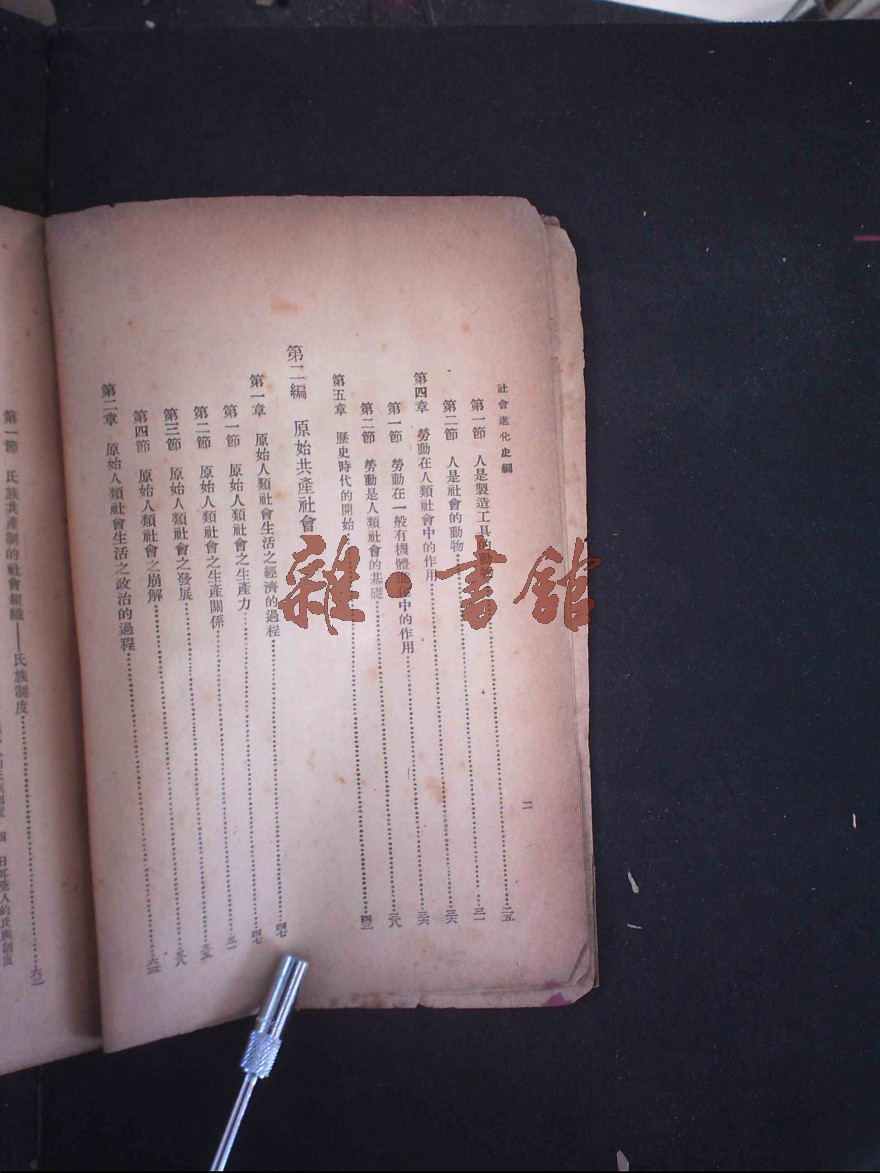 社會進化史綱 二
第一節 人是製造工具的動物……二五
第二節 人是社會的動物……三一
第四章 勞動在人類社會中的作用……三六
第一節 勞動在一般有機體進化中的作用……三六
第二節 勞動是人類社會的基礎……三八
第五章 歷史時代的開始……四三
第二編 原始共產社會
第一章 原始人類社會生活之經濟的過程……四七
第一節 原始人類社會之生產力……四七
第二節 原始人類社會之生產關係……五一
第三節 原始人類社會之發展……
第四節 原始人類社會之崩解……五八
第二章 原始人類社會生活之政治的過程……六二
第一節 氏族共產制的社會組織——氏族制度……六二
人的氏族制度
雜·書館